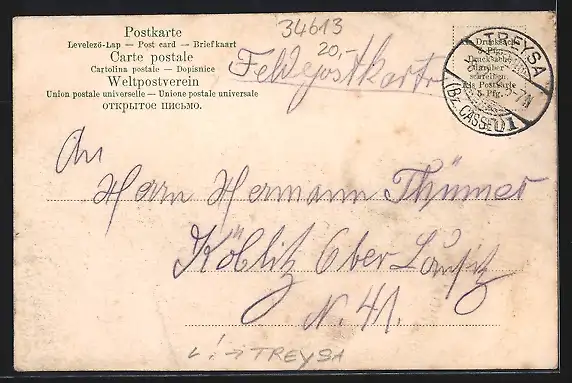 Postkarte
Levelező-Lap — Post card — Briefkaart
Carte postale
Cartolina postale — Dopisnice
Weltpostverein
Union postale universelle — Unione postale universale
ОТКРЫТОЕ ПИСЬМО.
34613
20,-
Feldpostkarte
Als Drucksache
3 Pfg.
Drucksache
schreiben.
Als Postkarte
5 Pfg.
TREYSA
(Bz. CASSEL)
An
Herrn Hermann Thümer
Köblitz Ober Lausitz
N. 41.
L! → TREYSA